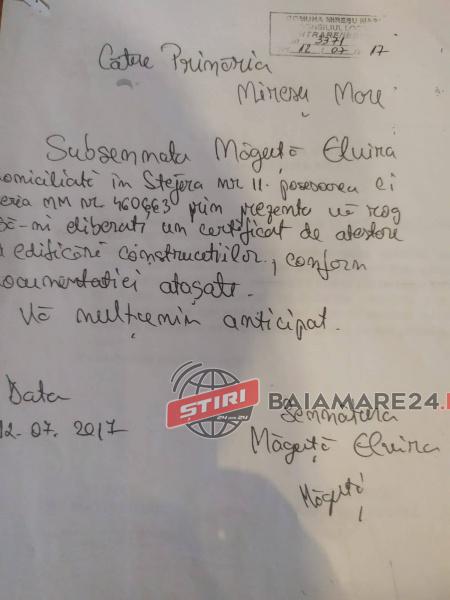 COMUNA MIREȘU MARE
CONSILIUL LOCAL
INTRARE
Nr 3371
12 07 17
Către Primăria
Mireșu Mare
Subsemnata Măguță Elvira
omiciliată în Stejera nr 11. posesoarea ci
eria MM nr 460663 prin prezenta vă rog
să-mi eliberați un certificat de atestare
a edificării construcțiilor, conform
documentației atașate.
Vă mulțumim anticipat.
Data
12.07.2017
Semnătura
Măguță Elvira
Măguță
ȘTIRI
24 din 24
BAIAMARE24.